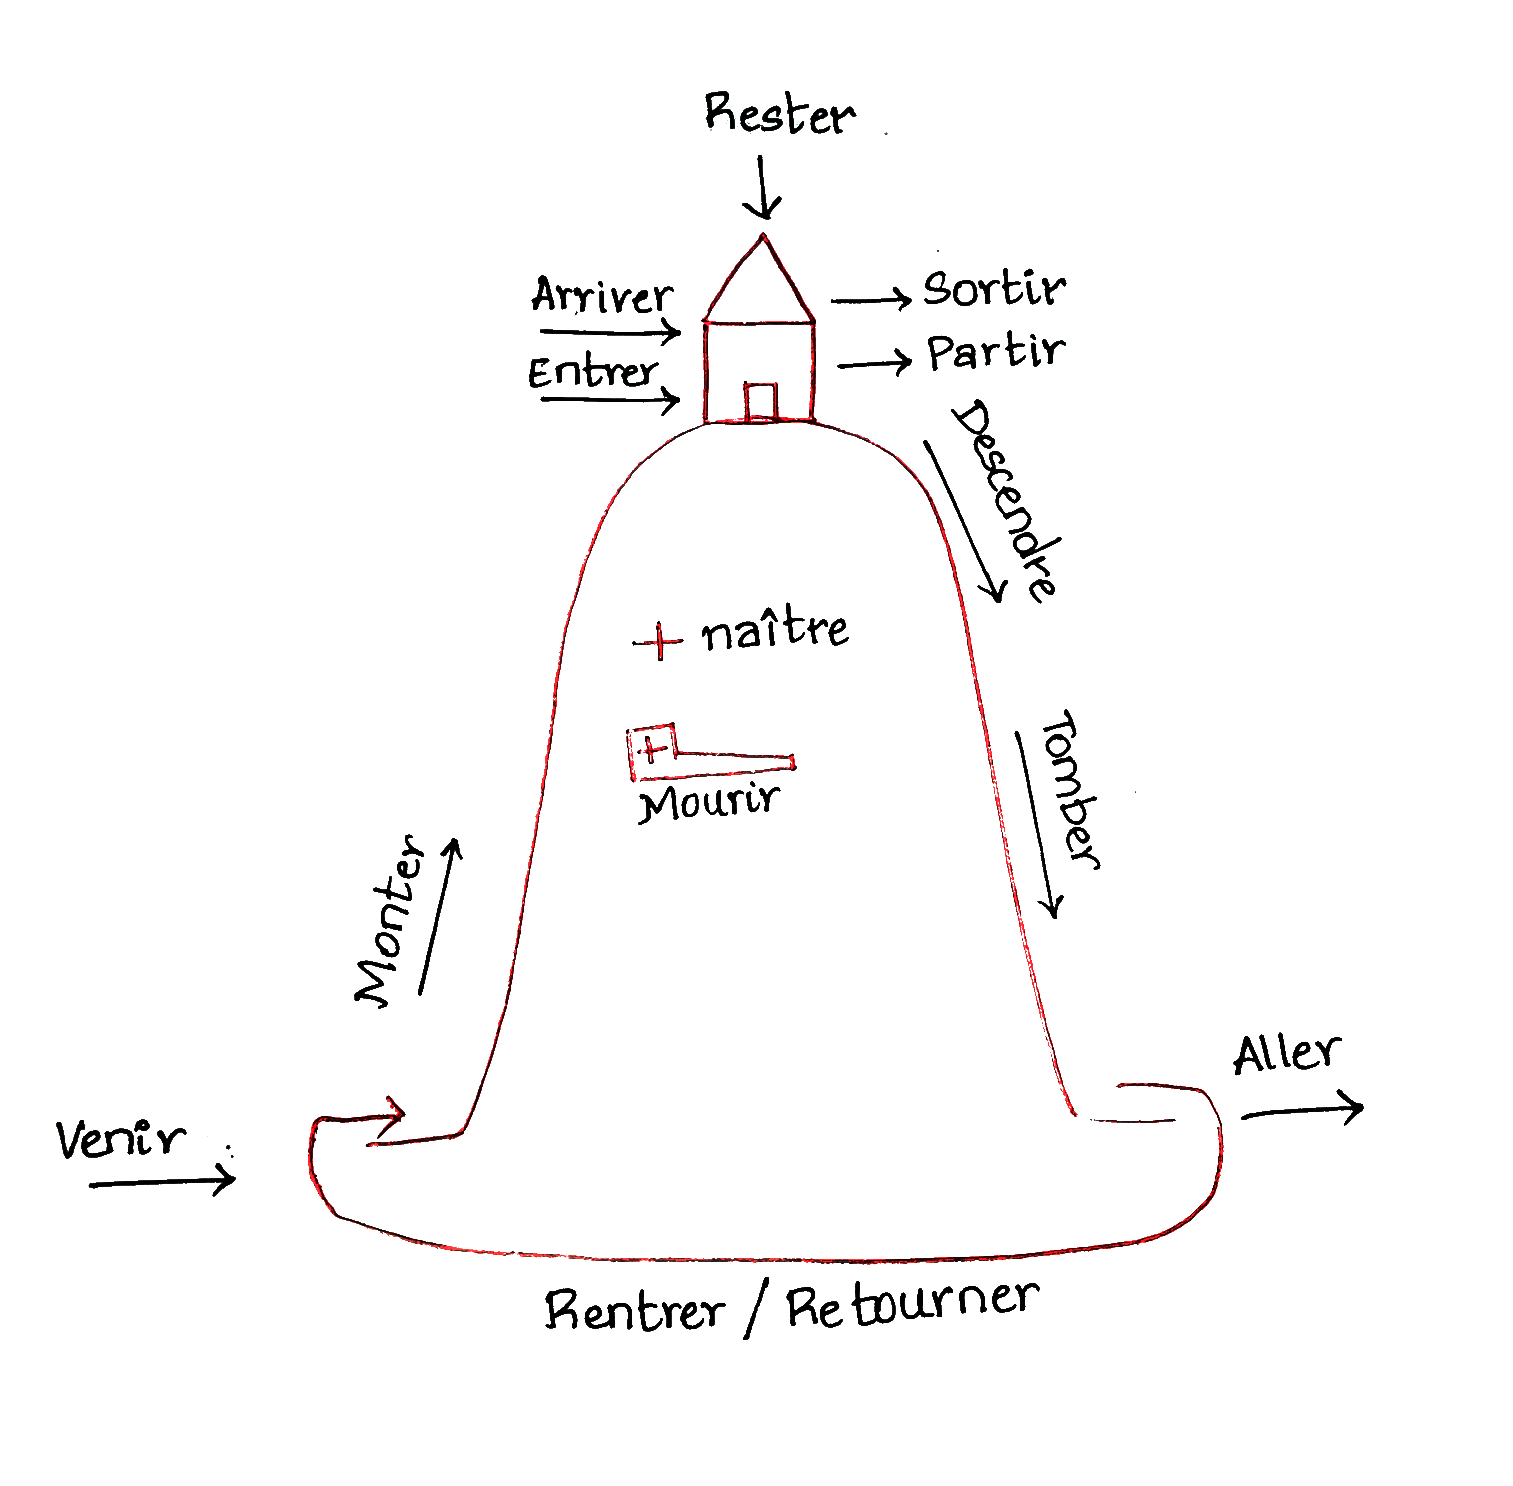 Rester
Arriver
Sortir
Entrer
Partir
Descendre
naître
Mourir
Tomber
Monter
Aller
Venir
Rentrer / Retourner